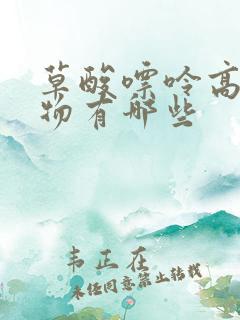 草酸嘌呤高
物有哪些
韦正在
未经同意禁止转载